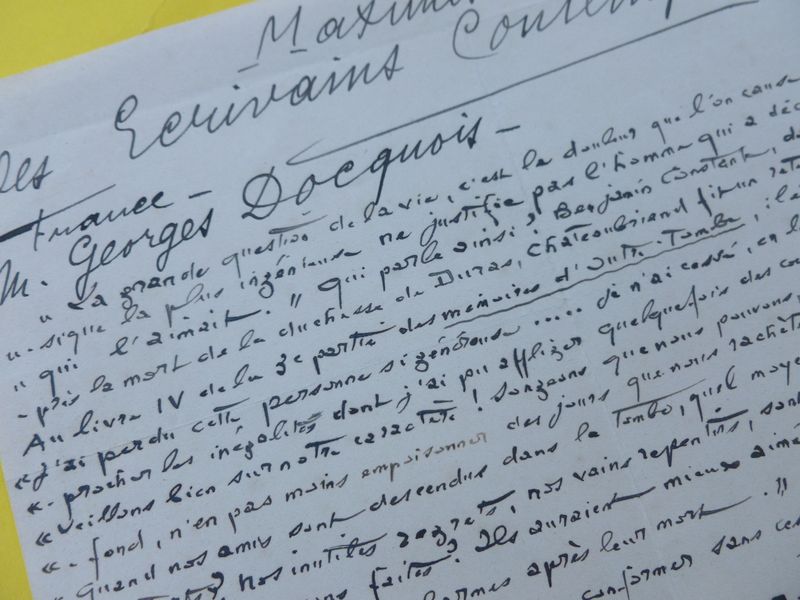 Maxim
des Ecrivains Contemp
France -
M. Georges Docquois -
" La grande question de la vie, c'est la douleur que l'on cause
" - sique la plus ingénieuse ne justifie pas l'homme qui a déc
" qui l'aimait. " Qui parle ainsi? Benjamin Constant, d
- près la mort de la duchesse de Duras, Châteaubriand fit un reto
Au livre IV de la 3e partie des mémoires d'Outre-Tombe, il
« j'ai perdu cette personne si généreuse ..... je n'ai cessé, en l
« - procher les inégalités dont j'ai pu affliger quelquefois des co
« veillons bien sur notre caractère! Songeons que nous pouvons,
« - fond, n'en pas moins empoisonner des jours que nous rachète
" quand nos amis sont descendus dans la Tombe, quel moye
nos inutiles regrets, nos vains repentirs, sont
faites? Ils auraient mieux aimé
après leur mort. "
conformer sans ces